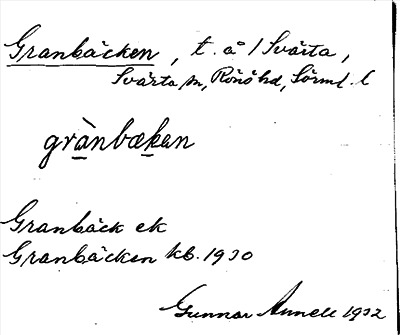 Granbäcken, t. å / Svärta,
Svärta sn, Rönö hd, Sörml. l
grànbæken
Granbäck ek
Granbäcken kb. 1930
Gunnar Annell 1932